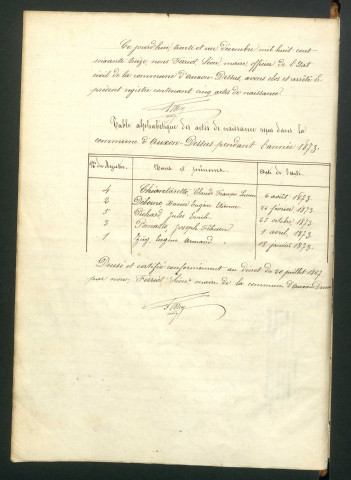 Ce jourd'hui trente et un décembre mil huit cent
soixante treize nous Ferriot Léon maire officier de l'Etat
civil de la commune d'Auxon-Dessus, avons clos et arrêté le
présent registre contenant cinq actes de naissance
Table alphabétique des actes de naissance reçus dans la
commune d'Auxon-Dessus pendant l'année 1873.
Nos du Registre Noms et prénoms Date de l'acte
4 Claude François 6 août 1873
2 Marie Eugène Etienne 20 février 1873
5 Jules Emile 25 octobre 1873
3 Joseph 1 avril 1873
1 Eugène Armand 18 janvier 1873
Dressé et certifié conformément au décret du 20 juillet 1807
par nous, Ferriot Léon maire de la commune d'Auxon-Dessus